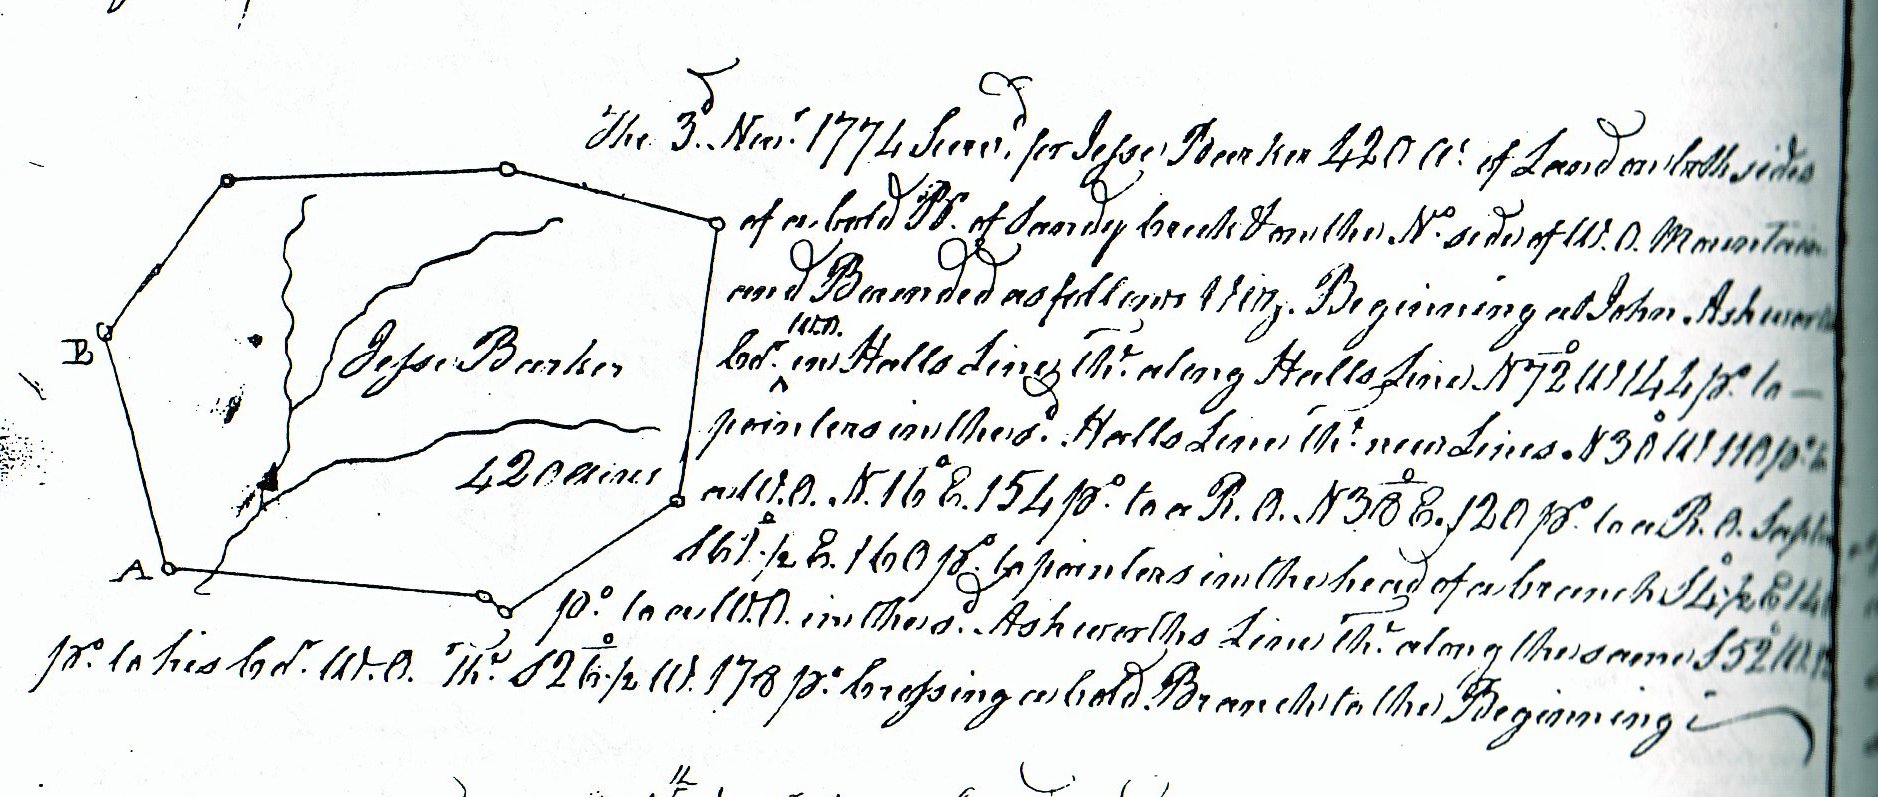 The 3d. Novr. 1774 Survd. for Jesse Barker 420 As. of Land on both sides
of a bold Br. of Sandy Creek & on the No. side of W. O. Mountain
and Bounded as follows Viz. Beginning at John Ashworths
W.O.
bd. in Halls Line Thr. along Halls Line N 72° W 144 po. to —
pointers in the sd. Halls Line Thr. new Lines N 30° W 110 po. to
a W. O. N. 16° E. 154 po. to a R. O. N 38° E. 120 po. to a R. O.
S 61° 1/2 E. 160 po. to pointers in the head of a branch S 4° 1/2 E
po. to a W. O. in the sd. Ashworths Line Thr. along the same S 52° W.
po. to his bd. W. O. Thr. S 26° 1/2 W. 178 po. Crossing a bold Branch to the Beginning
Jesse Barker
420 acres
B
A